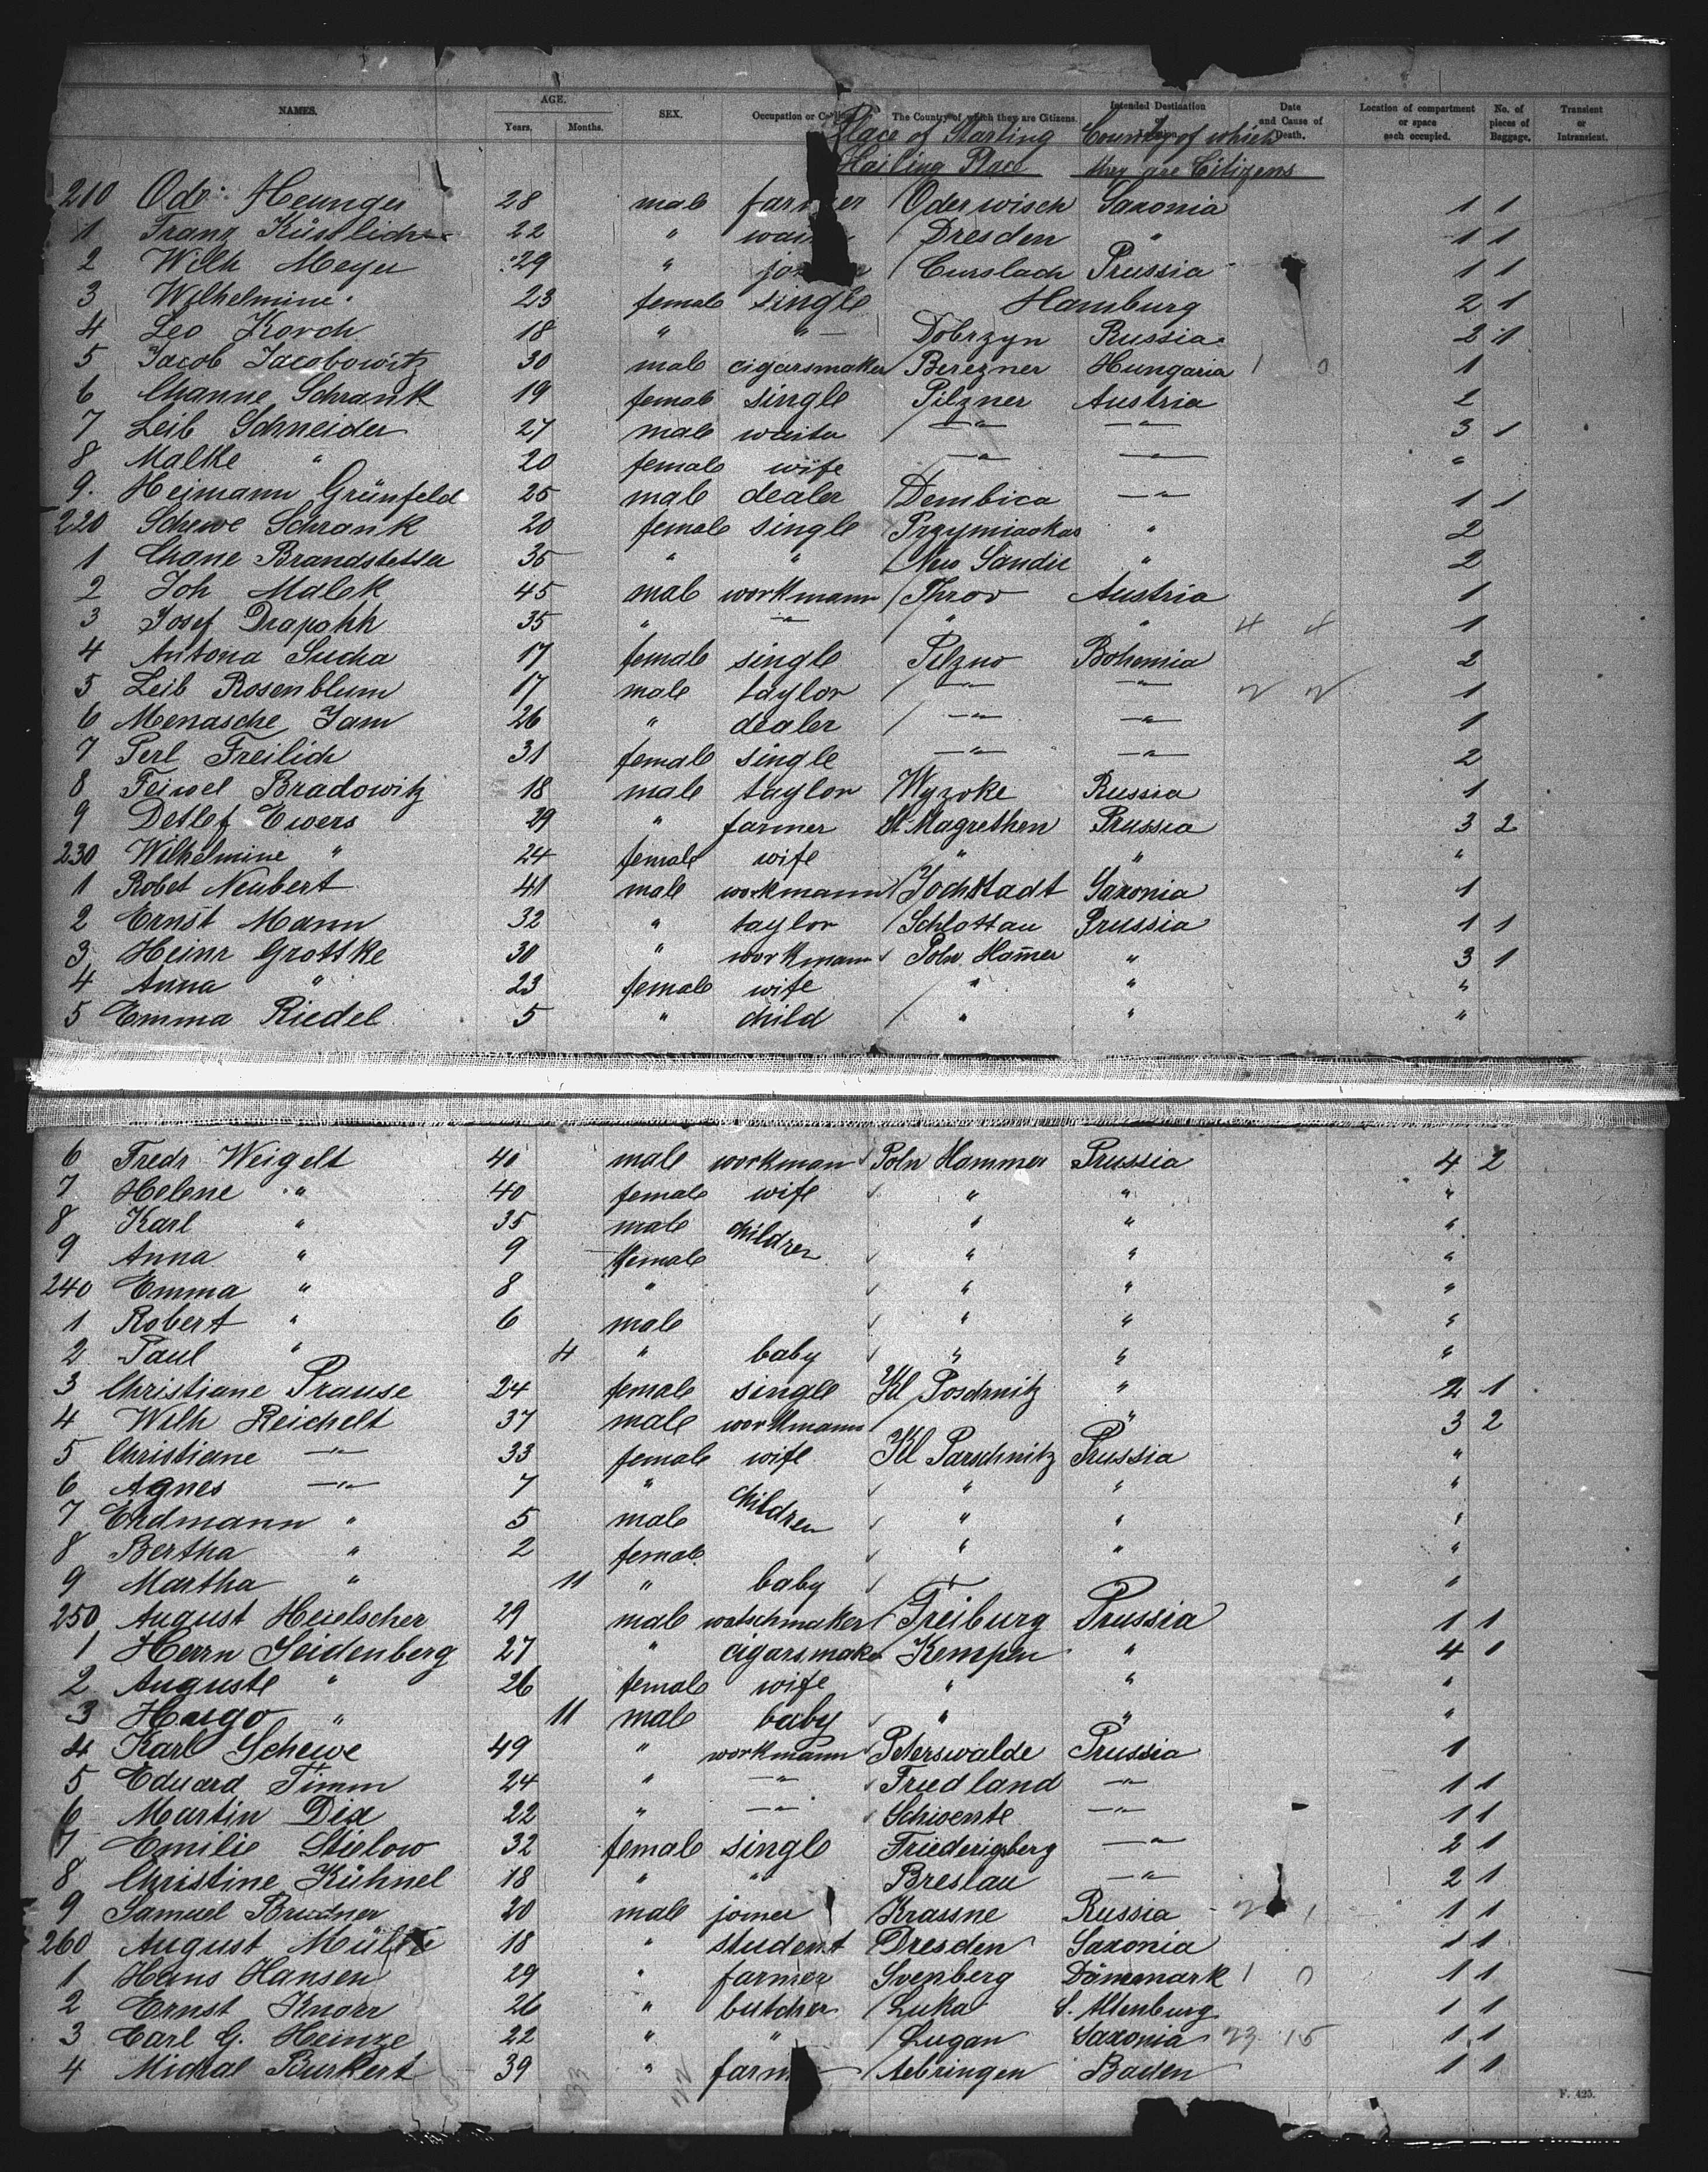 NAMES. AGE. Years. Months. SEX. Occupation or The Country of which they are Citizens. Intended Destination Date and Cause of Death. Location of compartment or space each occupied. No. of pieces of Baggage. Transient or Intransient.
Place of Starting Country of which
Hailing Place they are Citizens
210 Od. Heunger 28 male farmer Oderwisch Saxonia 1 1
1 Franz 22 " Dresden " 1 1
2 Wilh Meyer 29 " Curslach Prussia 1 1
3 Wilhelmine 23 female single Hamburg 2 1
4 Leo Korch 18 " " Dobrzyn Russia 2 1
5 Jacob Jacobowitz 30 male cigarsmaker Berezner Hungaria 1 0 1
6 Channe Schrank 19 female single Pilzner Austria 2
7 Leib Schneider 27 male waiter " " 3 1
8 Malke " 20 female wife " " "
9. Heimann Grünfeld 25 male dealer Dembica " 1 1
220 Schewe Schrank 20 female single " 2
1 Chane Brandstetter 35 " " New Sandec " 2
2 Joh Malek 45 male workmann Throv Austria 1
3 Josef 35 " " " " 4 4 1
4 Antona Sucha 17 female single Pilzno Bohemia 2
5 Leib Rosenblum 17 male taylor " " 1
6 Menasche Jam 26 " dealer " " 1
7 Perl Freilich 31 female single " " 2
8 Feiwel Bradowitz 18 male taylor Wyzoke Russia 1
9 Detlef Ewers 29 " farmer St Magrethen Prussia 3 2
230 Wilhelmine " 24 female wife " " "
1 Robet Neubert 41 male workmann Jochstadt Saxonia 1
2 Ernst Mann 32 " taylor Schlottau Prussia 1 1
3 Heinr Grottke 30 " workmann Poln. Hamer " 3 1
4 Anna " 23 female wife " " "
5 Emma Riedel 5 " child " " "
6 Fredr Weigelt 40 male workman Poln Hammer Prussia 4 2
7 Helene " 40 female wife " " "
8 Karl " 35 male children " " "
9 Anna " 9 female " " "
240 Emma " 8 " " " "
1 Robert " 6 male " " "
2 Paul " 4 " baby " " "
3 Christiane Prause 24 female single Kl Poschnitz " 2 1
4 Wilh Reichelt 37 male workmann " 3 2
5 Christiane " 33 female wife Kl Parschnitz Prussia "
6 Agnes " 7 " children " " "
7 Erdmann " 5 male " " "
8 Bertha " 2 female " " "
9 Martha " 11 " baby "
250 August Heielscher 29 male watschmaker Freiburg Prussia 1 1
1 Herrn Seidenberg 27 " cigarsmaker Kempen " 4 1
2 Auguste " 26 female wife " " "
3 Hugo " 11 male baby " " "
4 Karl Schewe 49 " workmann Peterswalde Prussia 1
5 Eduard Timm 24 " " Friedland " 1 1
6 Martin Dix 22 " " Schwente " 1 1
7 Emilie Stielow 32 female single Friederigsberg " 2 1
8 Christine Kühnel 18 " " Breslau " 2 1
9 Samuel Brudner 20 male joiner Krassne Russia 1 1
260 August 18 " student Dresden Saxonia 1 1
1 Hans Hansen 29 " farmer Svenberg Dänemark 1 0 1 1
2 Ernst Knorr 26 " butcher Luka S. Altenburg 1 1
3 Carl G. Heinze 22 " " Lugan Saxonia 23 15 1 1
4 Michal Burkert 39 " Aebringen Baden 1 1
F. 425.